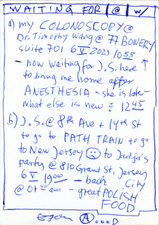 WAITING FOR @ w/
a) my COLONOSCOPY @
Dr. Timothy Wang @ 77 BOWERY
suite 701 6 V 2023 10:55
- now waiting for J.S. here ↑
to bring me home after
ANESTHESIA - she is late -
what else is new : 12:45
b) J.S. @ 8th Ave + 14th St
to go to PATH TRAIN to go
to New Jersey @ to
party @ 810 Grand St, Jersey
6 V 1900 - back City
@ 01 am - great POLISH
FOOD